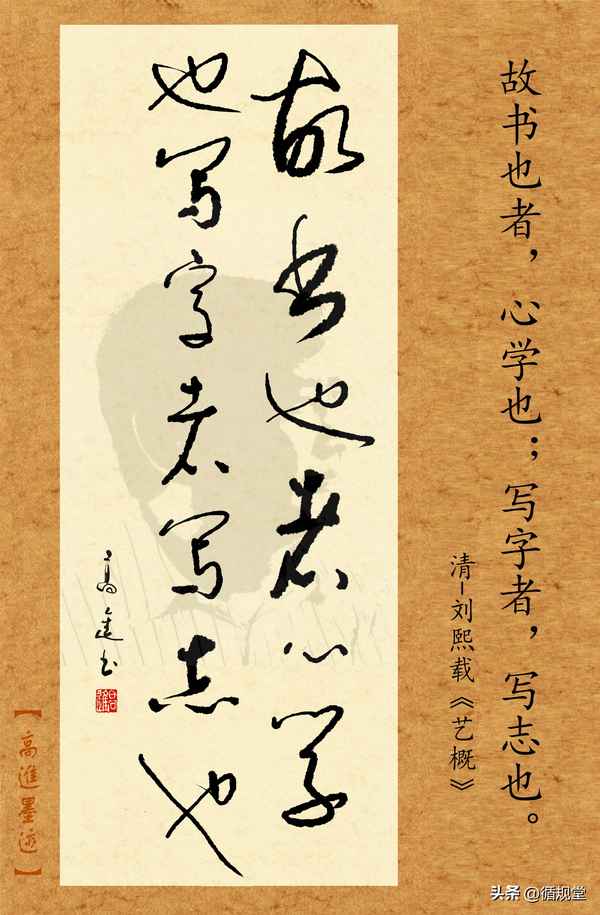 故书也者，心学也；写字者，写志也。
清-刘熙载《艺概》
故书也者心学
也写字者写志也
高進书
【高進墨迹】
头条 @循规堂